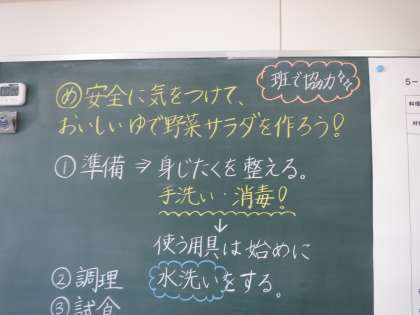 班で協力
め 安全に気をつけて、
おいしいゆで野菜サラダを作ろう!
① 準備 ⇒ 身じたくを整える。
手洗い・消毒!
↓
使う用具は始めに
水洗いをする。
② 調理
③ 試食
5-